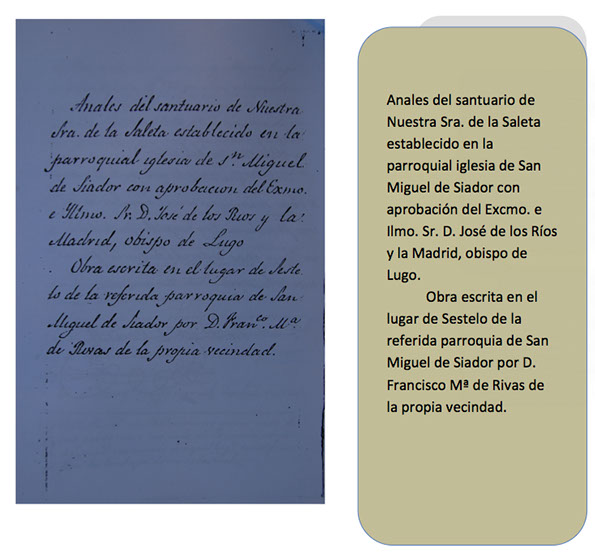 Anales del santuario de Nuestra
Sra. de la Saleta establecido en la
parroquial iglesia de Sn. Miguel
de Siador con aprobacion del Exmo.
e Ilmo. Sr. D. José de los Rios y la
Madrid, obispo de Lugo
Obra escrita en el lugar de Seste-
lo de la referida parroquia de San
Miguel de Siador por D. Franco. Ma.
de Rivas de la propia vecindad.
Anales del santuario de
Nuestra Sra. de la Saleta
establecido en la
parroquial iglesia de San
Miguel de Siador con
aprobación del Excmo. e
Ilmo. Sr. D. José de los Ríos
y la Madrid, obispo de
Lugo.
Obra escrita en el
lugar de Sestelo de la
referida parroquia de San
Miguel de Siador por D.
Francisco Mª de Rivas de
la propia vecindad.